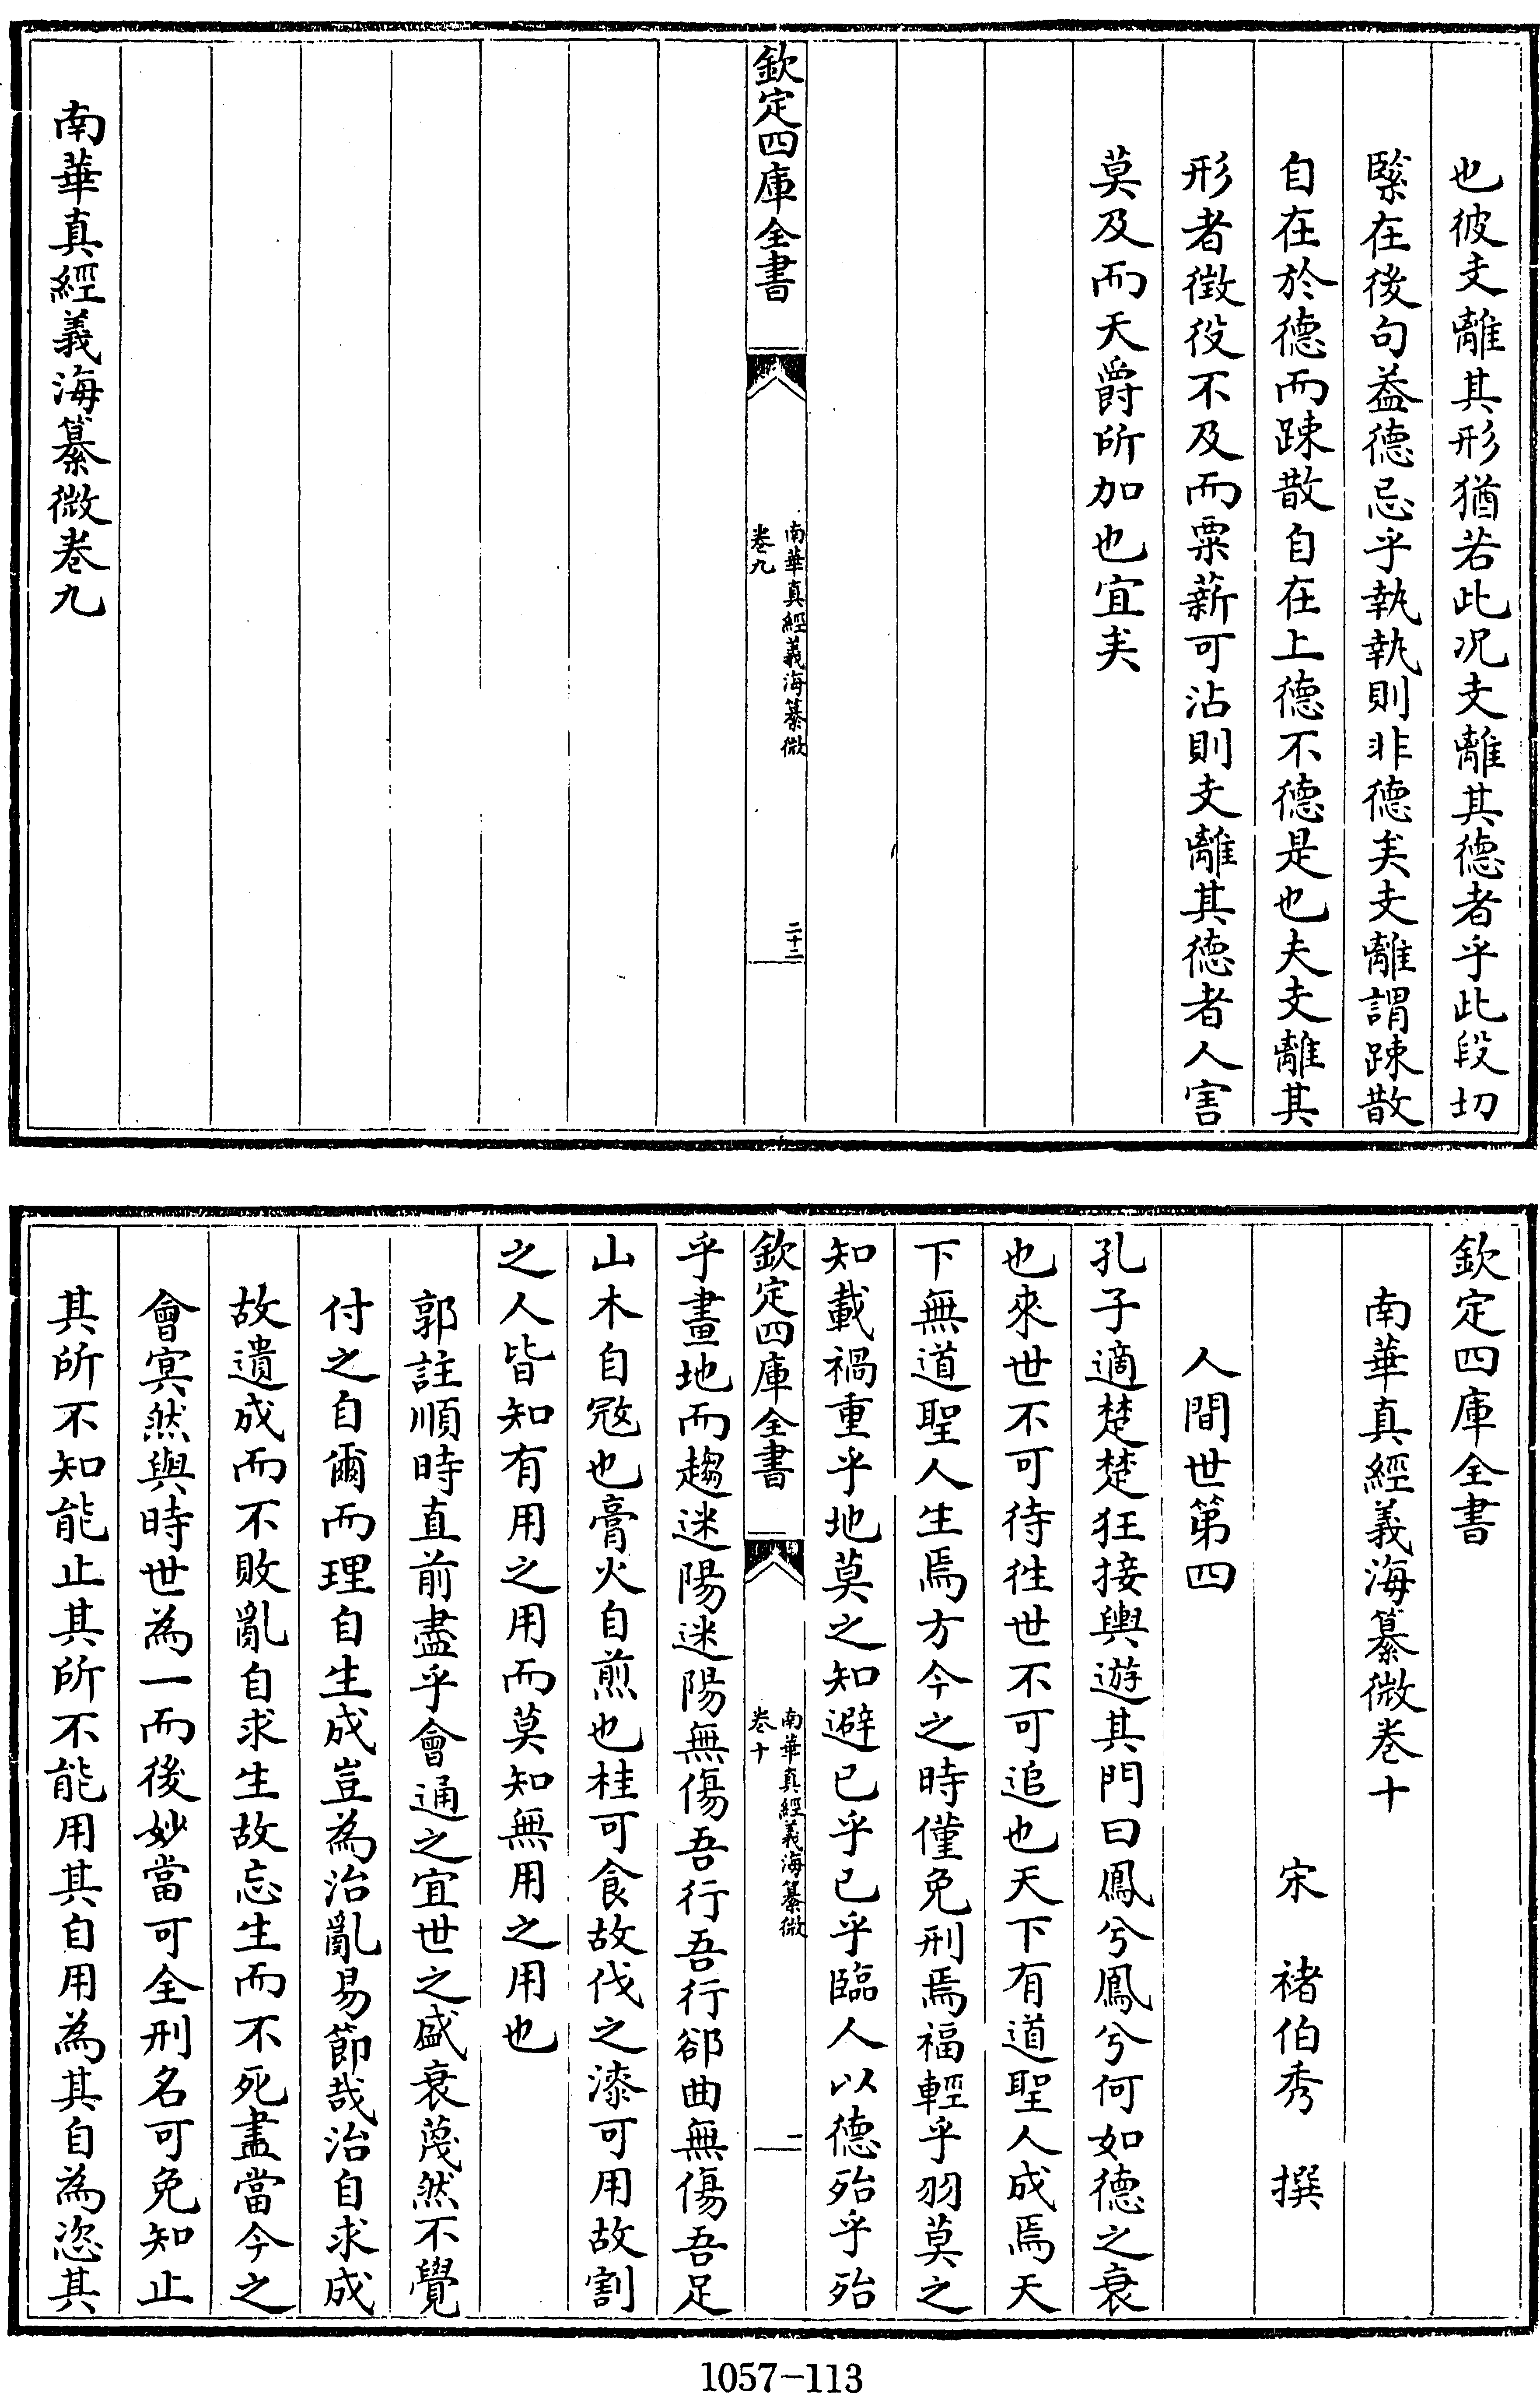 也彼支離其形猶若此况支離其德者乎此段切
緊在後句葢德忌乎執執則非德矣支離謂踈散
自在於德而踈散自在上德不德是也夫支離其
形者徵役不及而粟薪可沾則支離其德者人害
莫及而天爵所加也宜矣
欽定四庫全書
南華真經義海纂微
卷九
二十二
南華真經義海纂微卷九
欽定四庫全書
南華真經義海纂微卷十
宋 褚伯秀 撰
人間世第四
孔子適楚楚狂接輿遊其門曰鳳兮鳳兮何如德之衰
也來世不可待徃世不可追也天下有道聖人成焉天
下無道聖人生焉方今之時僅免刑焉福輕乎羽莫之
知載禍重乎地莫之知避已乎已乎臨人以德殆乎殆
欽定四庫全書
南華真經義海纂微
卷十
一
乎畫地而趨迷陽迷陽無傷吾行吾行郤曲無傷吾足
山木自宼也膏火自煎也桂可食故伐之漆可用故割
之人皆知有用之用而莫知無用之用也
郭註順時直前盡乎會通之宜世之盛衰蔑然不覺
付之自爾而理自生成豈為治亂易節哉治自求成
故遺成而不敗亂自求生故忘生而不死盡當今之
會冥然與時世為一而後妙當可全刑名可免知止
其所不知能止其所不能用其自用為其自為恣其
1057-113